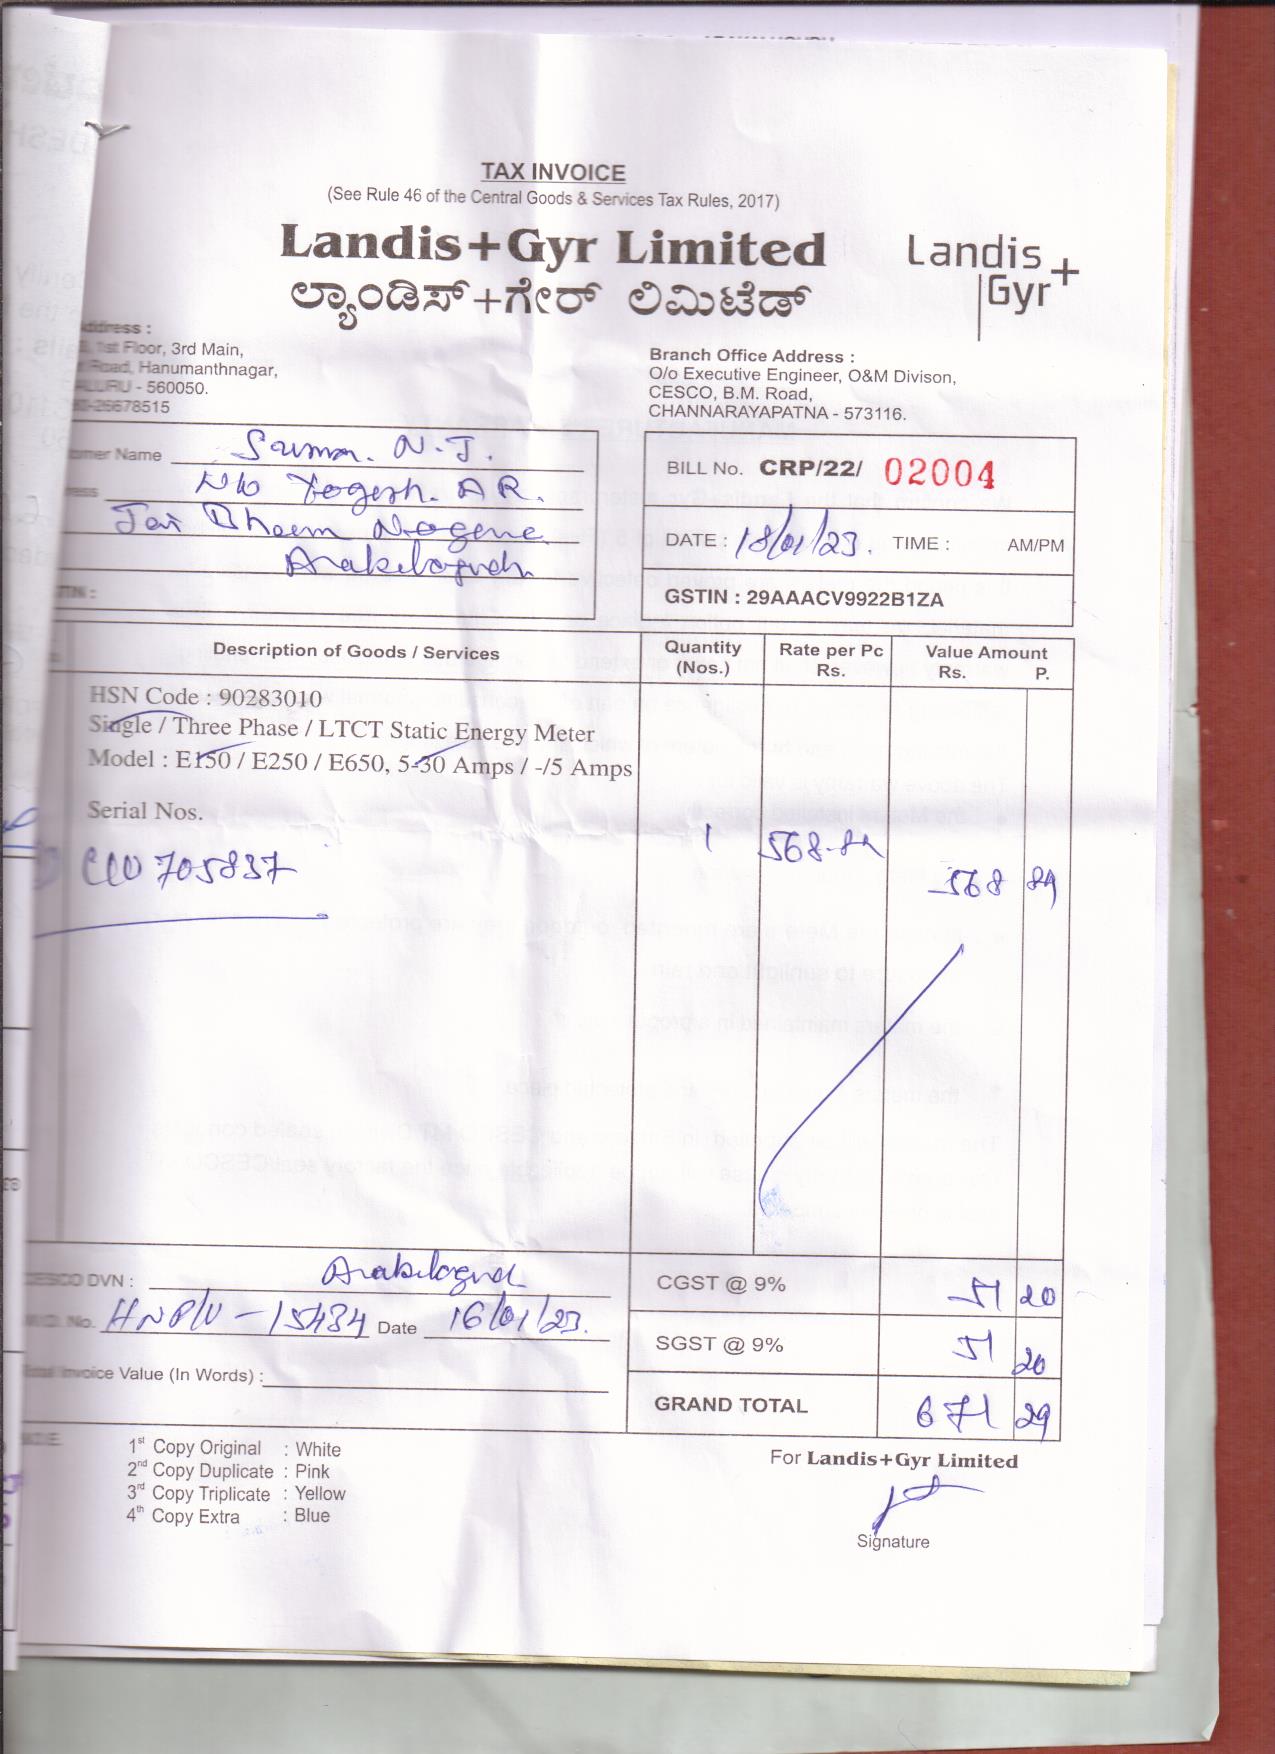 TAX INVOICE
(See Rule 46 of the Central Goods & Services Tax Rules, 2017)
Landis+Gyr Limited
ಲ್ಯಾಂಡಿಸ್+ಗೇರ್ ಲಿಮಿಟೆಡ್
Landis
Gyr+
Address :
1st Floor, 3rd Main,
Road, Hanumanthnagar,
- 560050.
-26678515
Branch Office Address :
O/o Executive Engineer, O&M Divison,
CESCO, B.M. Road,
CHANNARAYAPATNA - 573116.
Name Suma. N.J.
W/o Yogesh. A R.
Jai Bheem Nagara
Arakalagudu
BILL No. CRP/22/ 02004
DATE : 18/01/23. TIME : AM/PM
GSTIN : 29AAACV9922B1ZA
Description of Goods / Services Quantity (Nos.) Rate per Pc Rs. Value Amount Rs. P.
HSN Code : 90283010
Single / Three Phase / LTCT Static Energy Meter
Model : E150 / E250 / E650, 5-30 Amps / -/5 Amps
Serial Nos.
705837 1 568-89 568 89
CESCO DVN : Arakalagud
No. 15434 Date 16/01/23.
Invoice Value (In Words) :
CGST @ 9% 51 20
SGST @ 9% 51 20
GRAND TOTAL 671 29
1st Copy Original : White
2nd Copy Duplicate : Pink
3rd Copy Triplicate : Yellow
4th Copy Extra : Blue
For Landis+Gyr Limited
Signature